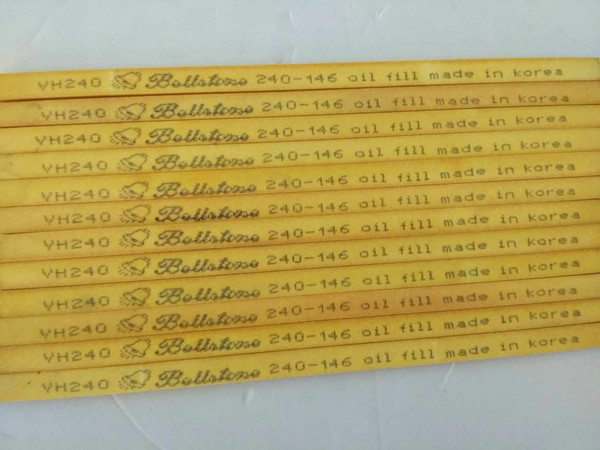 YH240 Bellstone 240-146 oil fill made in korea
YH240 Bellstone 240-146 oil fill made in korea
YH240 Bellstone 240-146 oil fill made in korea
YH240 Bellstone 240-146 oil fill made in korea
YH240 Bellstone 240-146 oil fill made in korea
YH240 Bellstone 240-146 oil fill made in korea
YH240 Bellstone 240-146 oil fill made in korea
YH240 Bellstone 240-146 oil fill made in korea
YH240 Bellstone 240-146 oil fill made in korea
YH240 Bellstone 240-146 oil fill made in korea
YH240 Bellstone 240-146 oil fill made in korea
YH240 Bellstone 240-146 oil fill made in korea